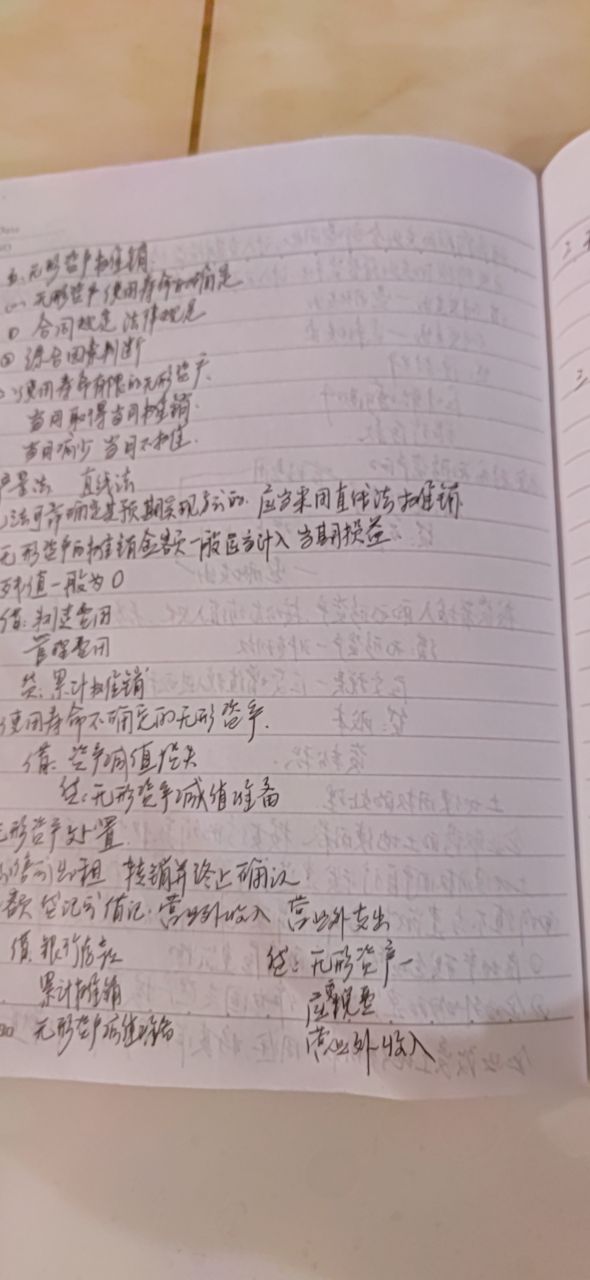 五.无形资产摊销
(一) 无形资产使用寿命的确定
① 合同规定 法律规定
② 综合因素判断
使用寿命有限的无形资产
当月取得当月摊销.
当月减少 当月不摊.
产量法 直线法
法可靠确定其预期实现方式的. 应当采用直线法摊销
无形资产的摊销金额一般应当计入当期损益
残值一般为0
借: 制造费用
管理费用
贷: 累计摊销
使用寿命不确定的无形资产.
借: 资产减值损失
贷: 无形资产减值准备
无形资产处置
出租 转销并终止确认
额 贷记 借记: 营业外收入 营业外支出
借: 银行存款 贷: 无形资产一
累计摊销 应交税费
无形资产减值准备 营业外收入